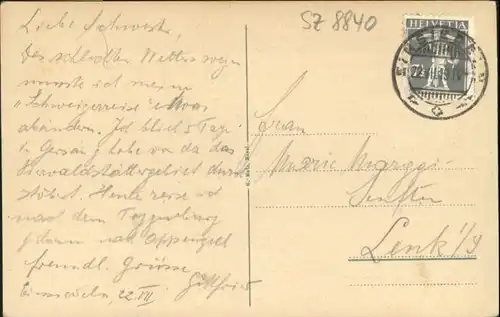 SZ 8840
HELVETIA
EINSIEDELN
Liebe Schwester,
Des schlechten Wetters wegen
musste ich meine
"Schweizerreise" etwas
abändern. Ich blieb 5 Tage
in Gersau & habe von da das
Vierwaldstättergebiet durch-
stöbert. Heute reise ich
nach dem Toggenburg
& dann nach Appenzell
freundl. Grüsse
Einsiedeln, 22. VII. Gottfried
Frau
Marie
Lenk i/S